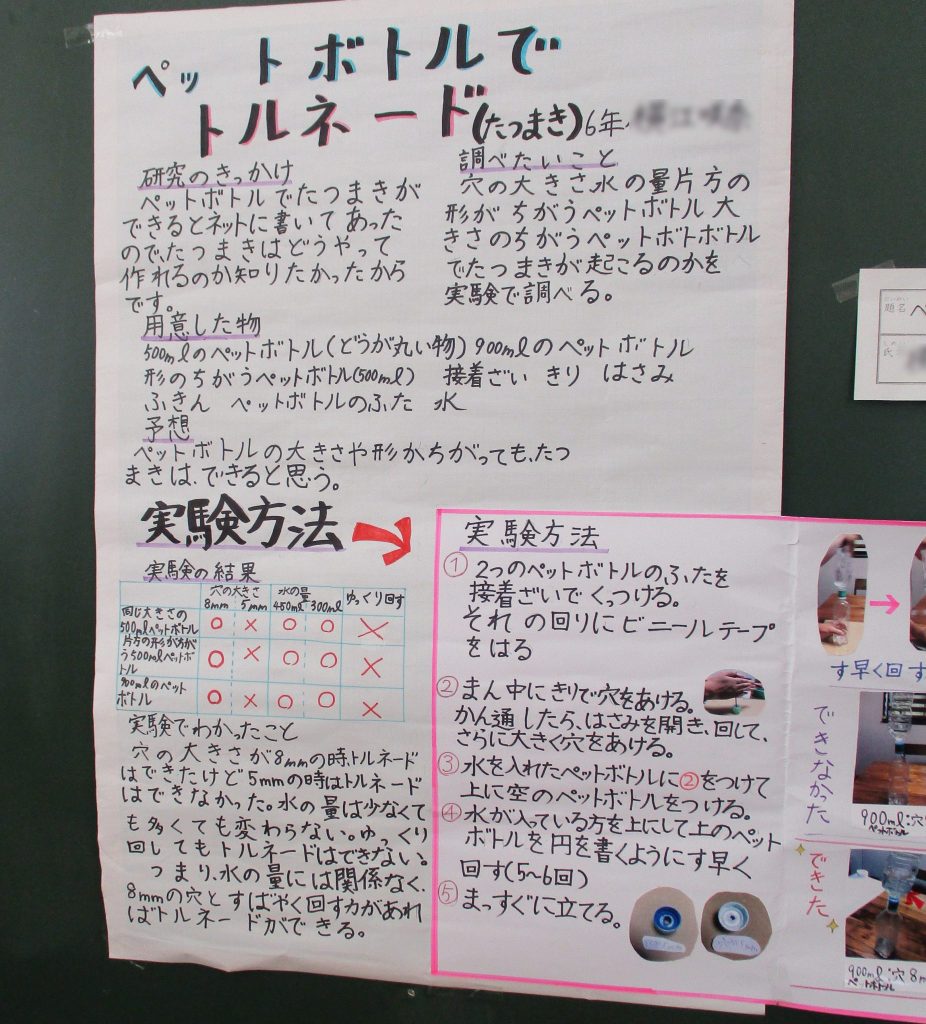 ペットボトルで
トルネード(たつまき)6年
研究のきっかけ
ペットボトルでたつまきが
できるとネットに書いてあった
ので、たつまきはどうやって
作れるのか知りたかったから
です。
調べたいこと
穴の大きさ水の量片方の
形がちがうペットボトル大
きさのちがうペットボトボトル
でたつまきが起こるのかを
実験で調べる。
用意した物
500mlのペットボトル(どうが丸い物) 900mlのペットボトル
形のちがうペットボトル(500ml) 接着ざい きり はさみ
ふきん ペットボトルのふた 水
予想
ペットボトルの大きさや形がちがっても、たつ
まきは、できると思う。
実験方法
実験の結果
穴の大きさ 水の量 ゆっくり回す
8mm 5mm 450ml 300ml
同じ大きさの
500mlペットボトル ○ × ○ ○ ×
片方の形がちが
う500mlペットボ
トル ○ × ○ ○ ×
900mlのペット
ボトル ○ × ○ ○ ×
実験でわかったこと
穴の大きさが8mmの時、トルネード
はできたけど5mmの時はトルネード
はできなかった。水の量は少なくて
も多くても変わらない。ゆっくり
回してもトルネードはできない。
つまり、水の量には関係なく、
8mmの穴とすばやく回す力があれ
ばトルネードができる。
実験方法
① 2つのペットボトルのふたを
接着ざいでくっつける。
それの回りにビニールテープ
をはる
② まん中にきりで穴をあける。
かん通したら、はさみを開き、回して、
さらに大きく穴をあける。
③ 水を入れたペットボトルに②をつけて
上に空のペットボトルをつける。
④ 水が入っている方を上にして上のペット
ボトルを円を書くようにす早く
回す(5〜6回)
⑤ まっすぐに立てる。
す早く回す
できなかった
900ml:穴
ペットボトル
できた
900ml:穴8m
ペットボトル
題名